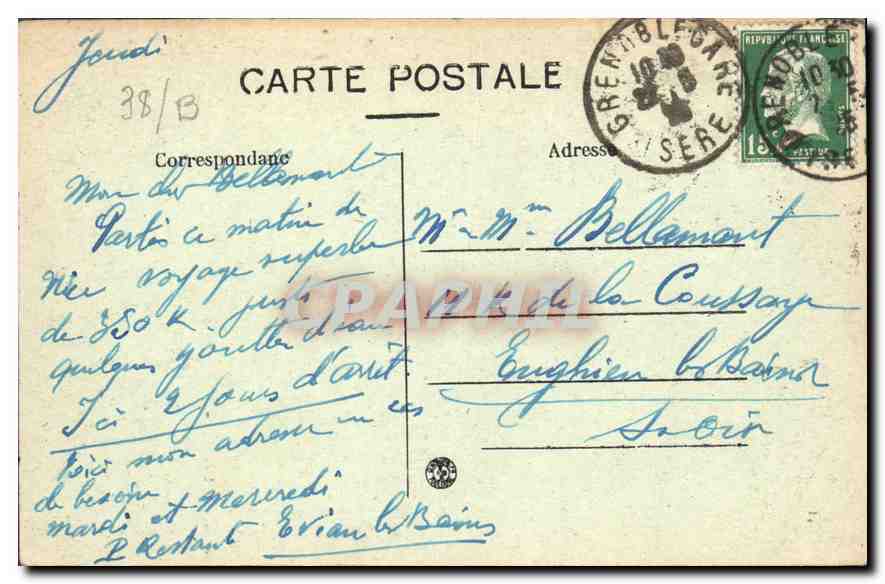 Jeudi
CARTE POSTALE
38/B
Correspondance
Adresse
GRENOBLE GARE
ISERE
REPUBLIQUE FRANÇAISE
15
POSTES
GRENOBLE
Mon cher Bellamant
Partis ce matin de
Nice voyage superbe
de 350 K. juste
quelques gouttes d'eau
Ici 2 jours d'arrêt
Voici mon adresse en cas
de besoin
mardi et Mercredi
P. Restante Evian les Bains
Mr Mme Bellamant
de la Coussaye
Enghien les Bains
S et Oise
CPAPHIL